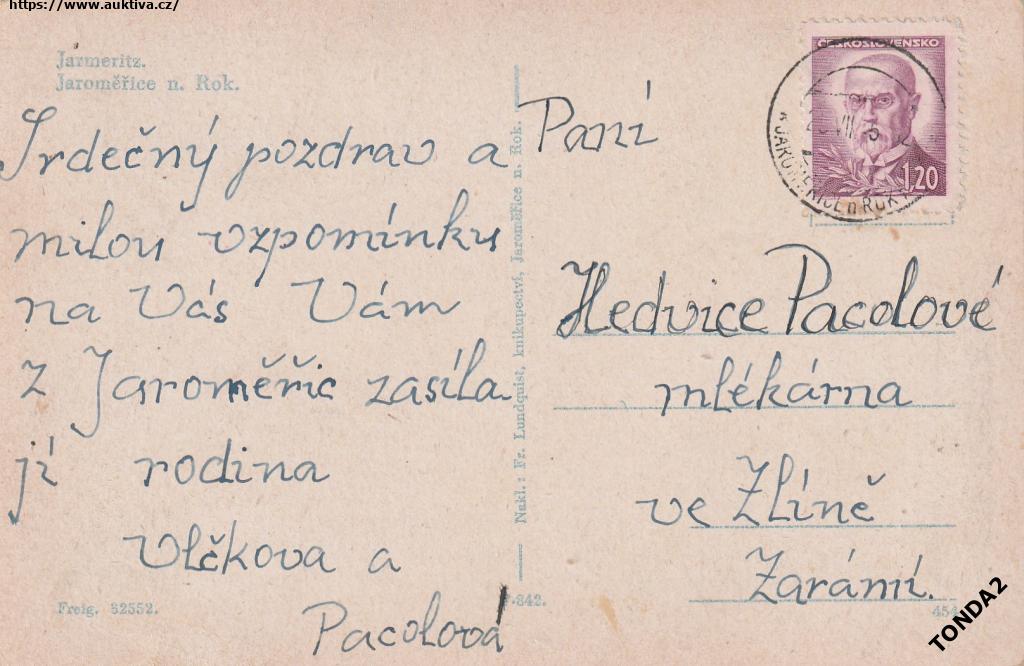 https://www.auktiva.cz/
Jarmeritz.
Jaroměřice n. Rok.
Srdečný pozdrav a
milou vzpomínku
na Vás Vám
z Jaroměřic zasíla-
jí rodina
Vlčkova a
Pacolová
Freig. 82552.
Nakl.: Fr. Lundquist, knihkupectví, Jaroměřice n. Rok.
842.
ČESKOSLOVENSKO
1,20
Paní
Hedvice Pacolové
mlékárna
ve Zlíně
Zarámí.
454
TONDA2